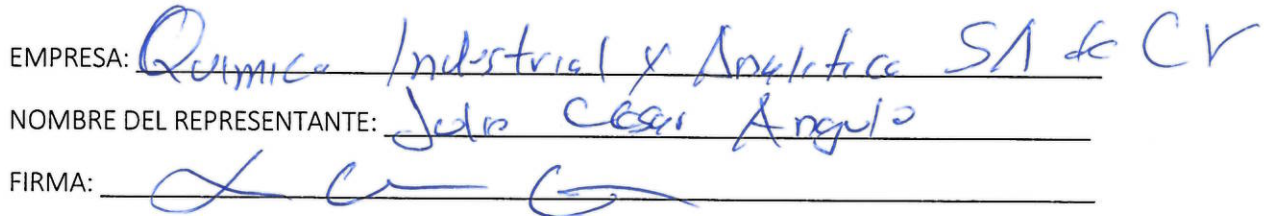 EMPRESA: Quimica Industrial y Analitica SA de CV
NOMBRE DEL REPRESENTANTE: Julio César Angulo
FIRMA: